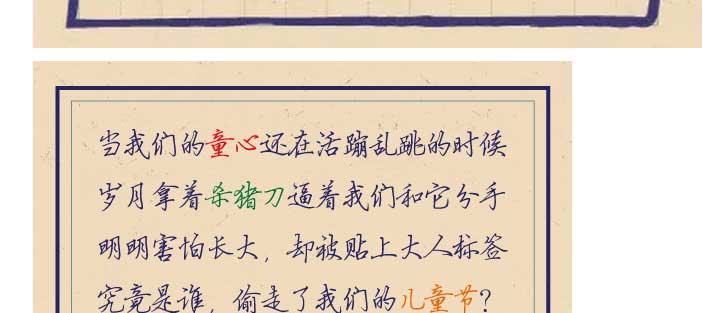 当我们的童心还在活蹦乱跳的时候
岁月拿着杀猪刀逼着我们和它分手
明明害怕长大，却被贴上大人标签
究竟是谁，偷走了我们的儿童节？